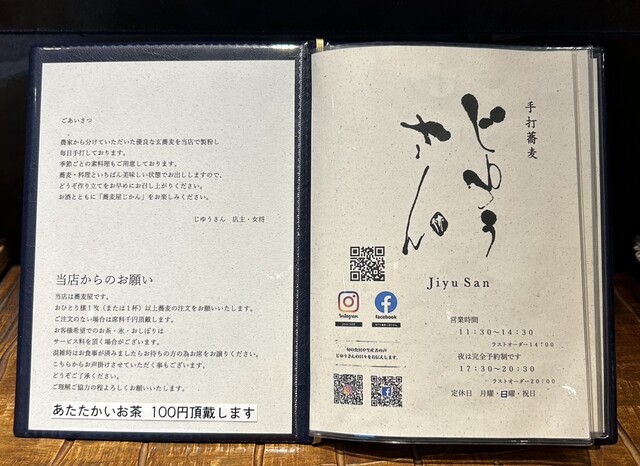 ごあいさつ
農家から分けていただいた優良な玄蕎麦を当店で製粉し
毎日手打しております。
季節ごとの素料理もご用意しております。
蕎麦・料理といちばん美味しい状態でお出ししますので、
どうぞ作り立てをお早めにお召し上がりください。
お酒とともに「蕎麦屋じかん」をお楽しみください。
じゆうさん 店主・女将
当店からのお願い
当店は蕎麦屋です。
おひとり様1枚（または1杯）以上蕎麦の注文をお願いいたします。
ご注文のない場合は席料千円頂戴します。
お客様希望でのお茶・氷・おしぼりは
サービス料を頂く場合がございます。
混雑時はお食事が済みましたらお待ちの方の為お席をお譲りください。
こちらからお声掛けさせていただく事もございます。
どうぞご了承ください。
ご理解ご協力の程よろしくお願いいたします。
あたたかいお茶 100円頂戴します
手打蕎麦
じゆう
さん
Jiyu San
Instagram
facebook
旬のおかずや生産者の声
じゆうさんの日々をお伝えします。
営業時間
11:30~14:30
ラストオーダー14:00
夜は完全予約制です
17:30~20:30
ラストオーダー20:00
定休日 月曜・日曜・祝日